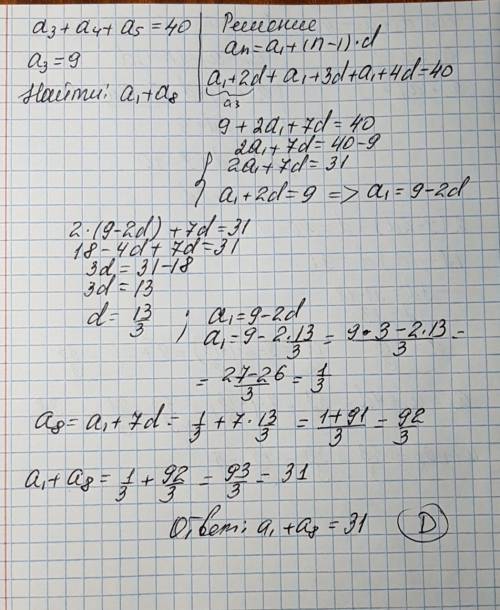 a₃ + a₄ + a₅ = 40
a₃ = 9
Найти: a₁ + a₈
Решение
aₙ = a₁ + (n-1)·d
a₁ + 2d + a₁ + 3d + a₁ + 4d = 40
a₃
9 + 2a₁ + 7d = 40
2a₁ + 7d = 40 - 9
{ 2a₁ + 7d = 31
a₁ + 2d = 9 => a₁ = 9 - 2d
2·(9 - 2d) + 7d = 31
18 - 4d + 7d = 31
3d = 31 - 18
3d = 13
d = 13/3 ; a₁ = 9 - 2d
a₁ = 9 - 2·13/3 = (9·3 - 2·13)/3 =
= (27 - 26)/3 = 1/3
a₈ = a₁ + 7d = 1/3 + 7·13/3 = (1 + 91)/3 = 92/3
a₁ + a₈ = 1/3 + 92/3 = 93/3 = 31
Ответ: a₁ + a₈ = 31 D